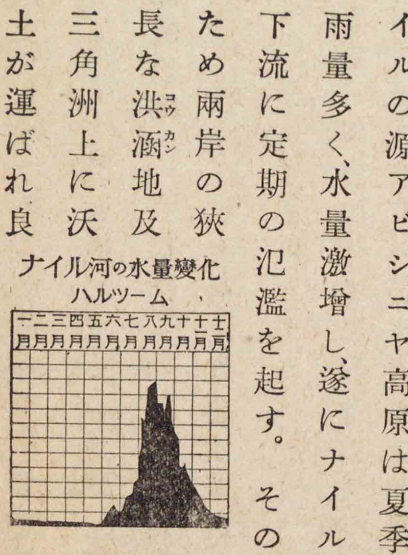 イルの源アビシニヤ高原は夏季
雨量多く、水量激增し、遂にナイル
下流に定期の氾濫を起す。その
ため兩岸の狹
長な洪涵地及
コウカン
三角洲上に沃
土が運ばれ良
ナイル河の水量變化
ハルツーム
一月 二月 三月 四月 五月 六月 七月 八月 九月 十月 十一月 十二月